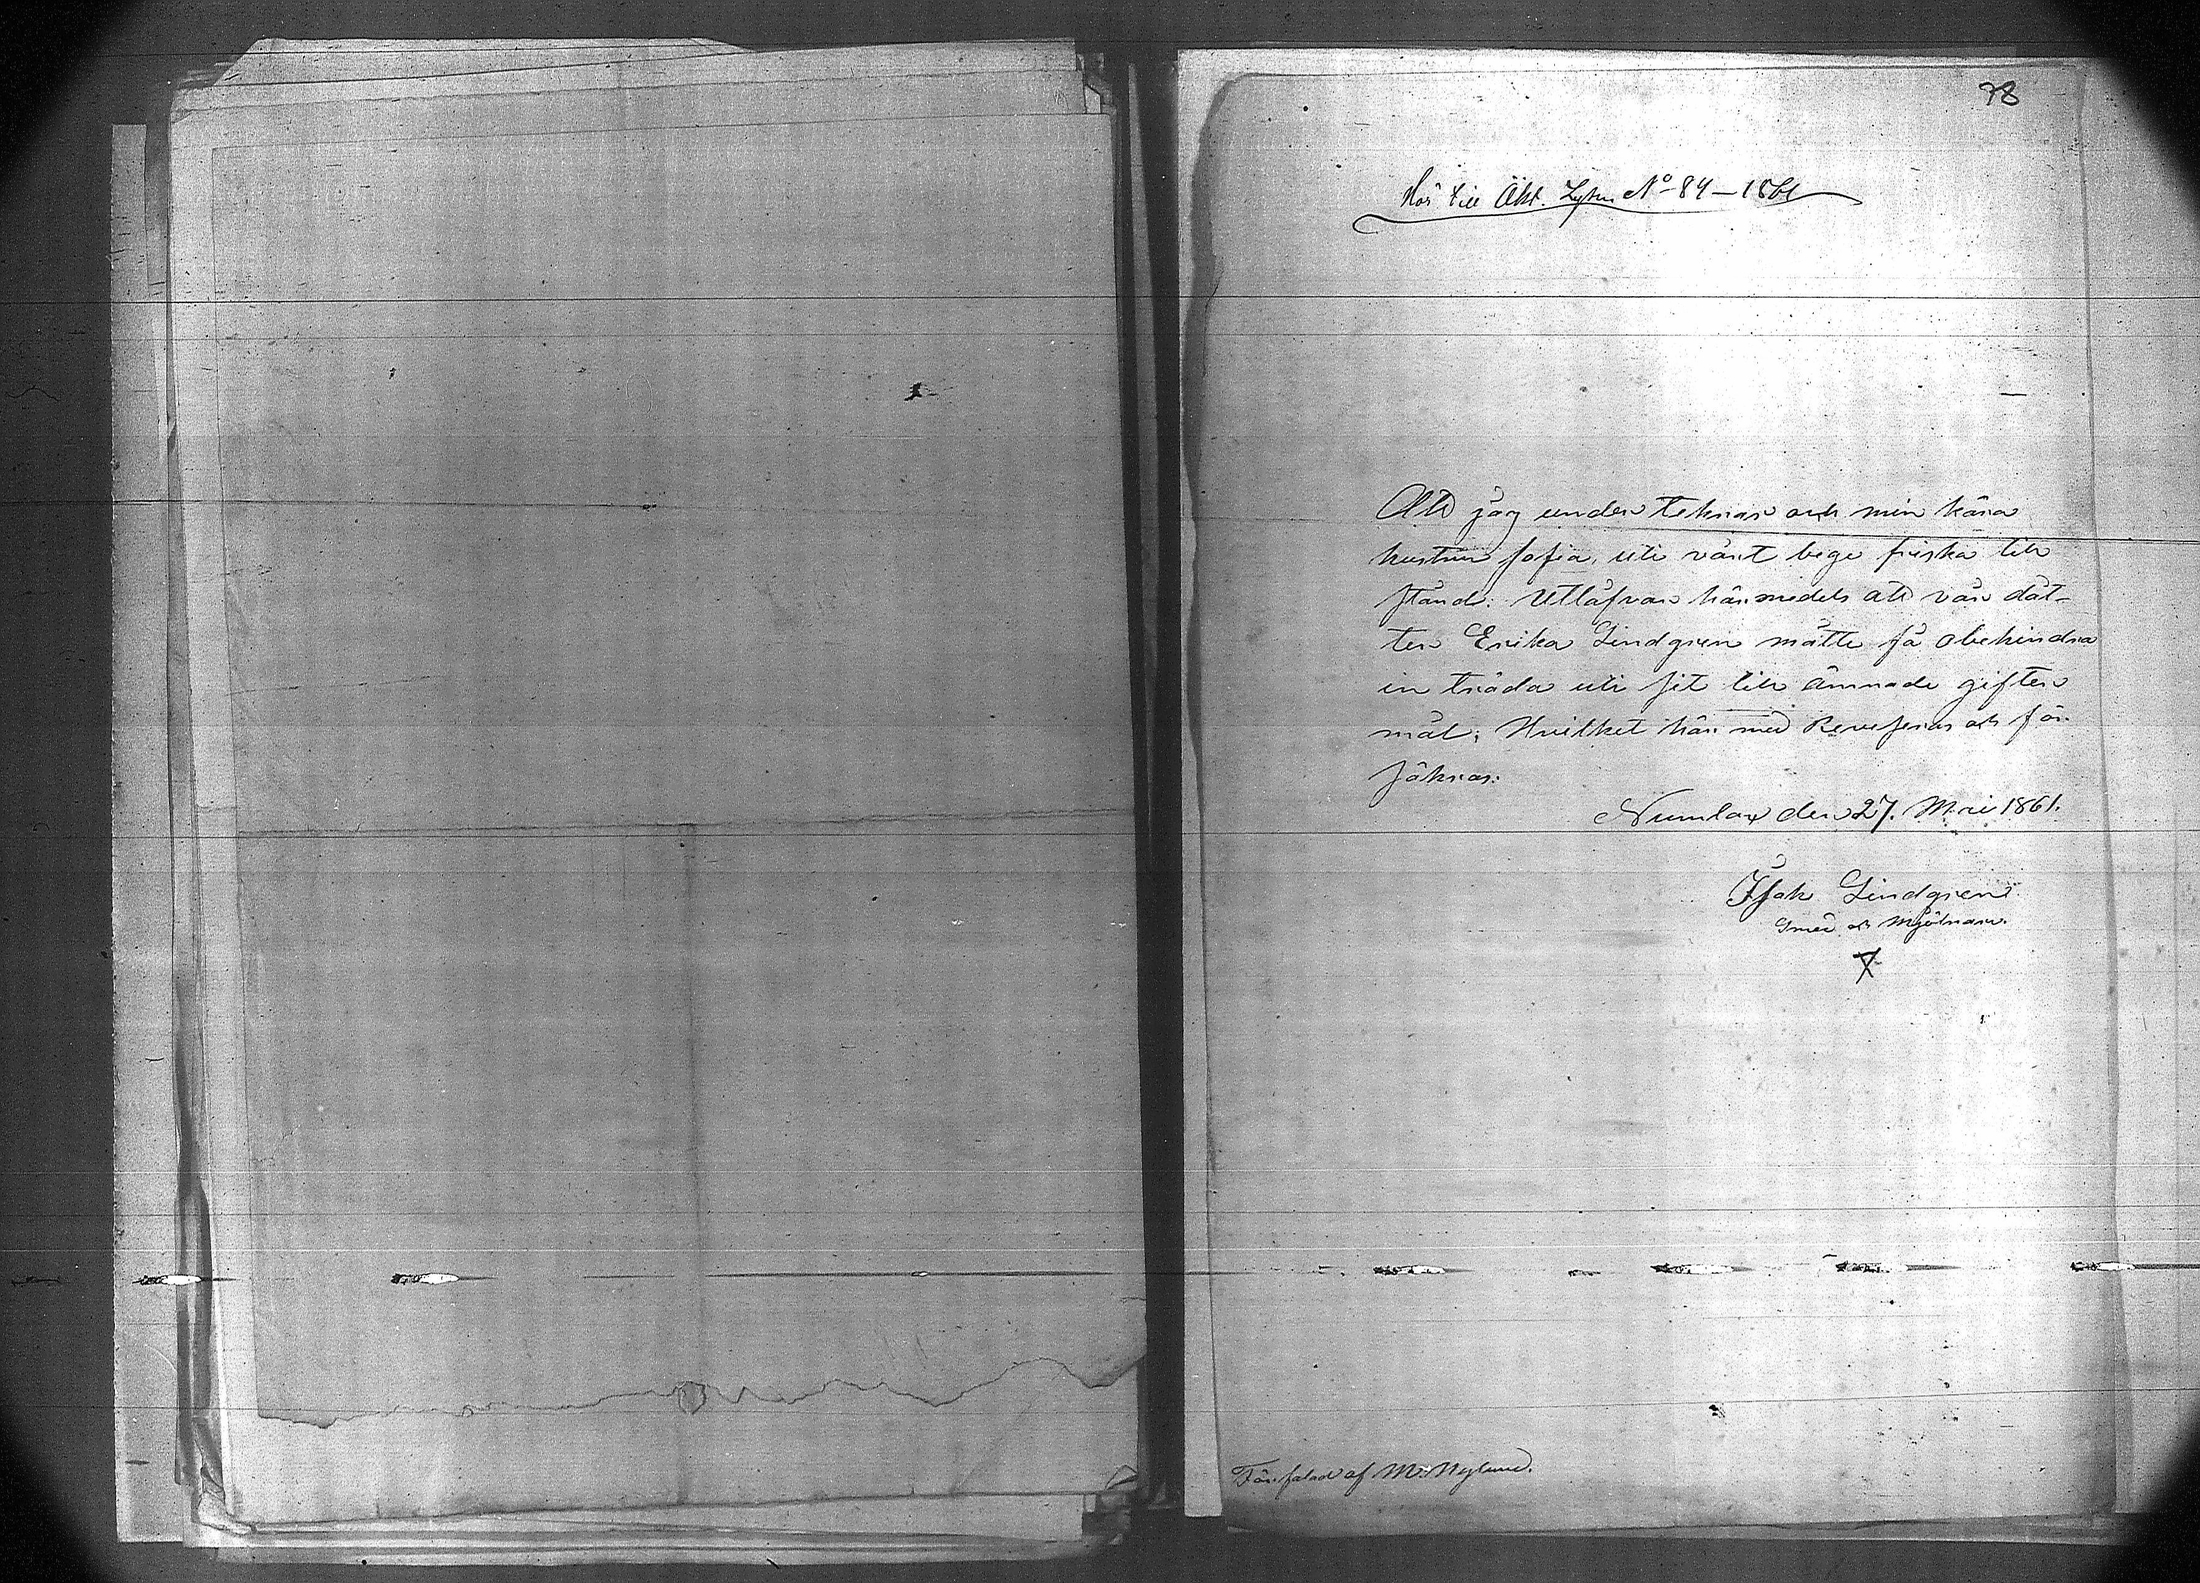 78
Hör till Äkt. Lysn. No 84 – 1861
Att jag under teknar och min kära
hustru Sofia, uti vårt bege friska till
stånd: Utlåfvar härmedels att vår dåt-
ter Erika Lindgren måtte få obehindra
in träda uti sit till ämnade gifter
mål; Hvilket här med Reveseras och för
säkras:
Numlax den 27. Mai 1861.
Isak Lindgren
Smed och Mjölnare.
X
Författad af M. Nylund.